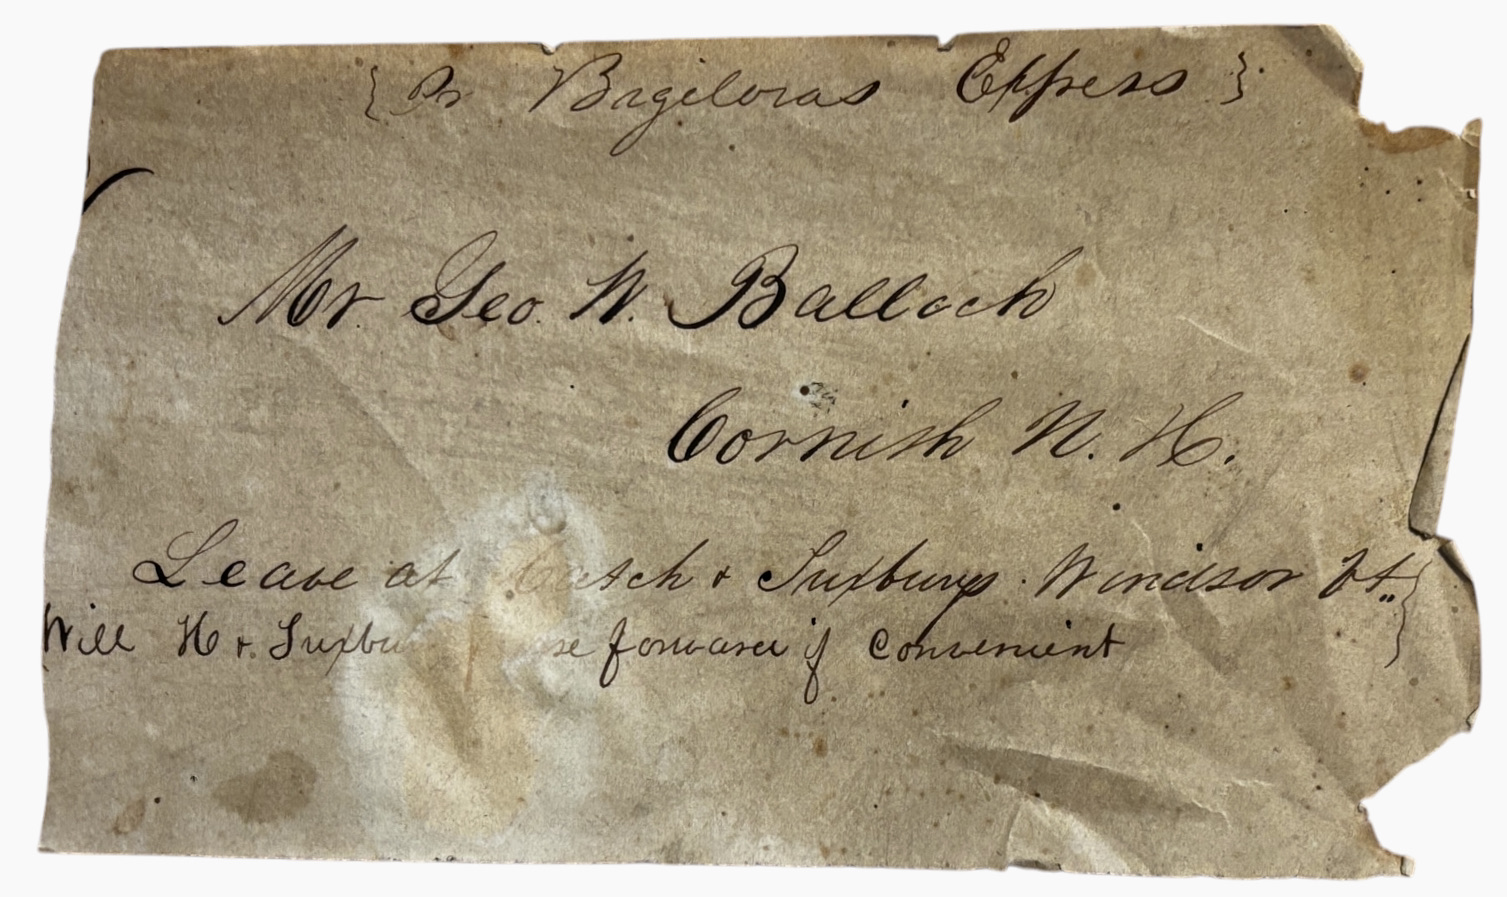 { Pr Bigelows Express }
Mr Geo. W. Balloch
Cornish N. H.
Leave at Hatch & Tuxburys Windsor Vt.
Will H & Tuxbury forward if convenient